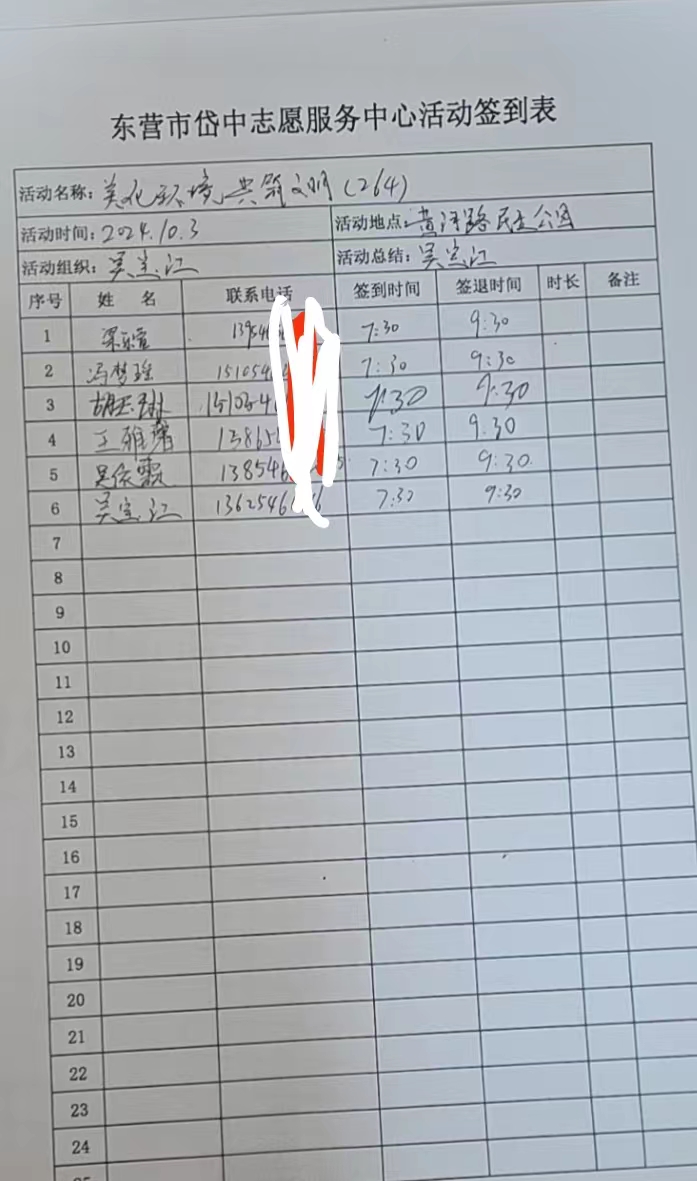 东营市岱中志愿服务中心活动签到表
活动名称: 美化环境 共筑文明 (264)
活动时间: 2024.10.3 活动地点: 黄河路民主公园
活动组织: 吴宝江 活动总结: 吴宝江
序号 姓 名 联系电话 签到时间 签退时间 时长 备注
1 7:30 9:30
2 冯梦瑶 15105 7:30 9:30
3 15105 7:30 9:30
4 王雅 1386 7:30 9:30
5 13854 7:30 9:30
6 吴宝江 1362546 7:30 9:30
7
8
9
10
11
12
13
14
15
16
17
18
19
20
21
22
23
24